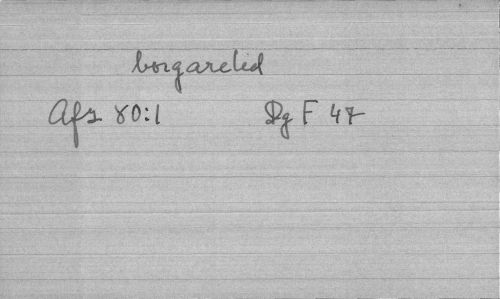 borgareled
Afs 80:1 Dg F 47